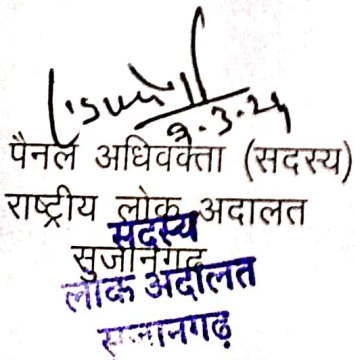 9.3.24
पैनल अधिवक्ता (सदस्य)
राष्ट्रीय लोक अदालत
सदस्य
सुजानगढ़
लोक अदालत
सुजानगढ़